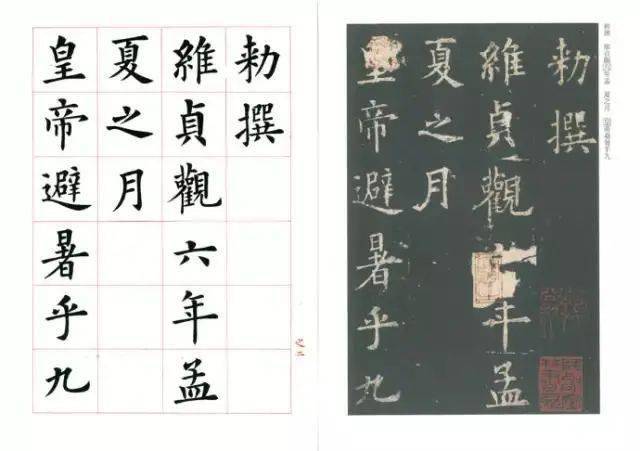 勑撰
維貞觀年孟
夏之月
皇帝避暑乎九
勑撰
維貞觀六年孟
夏之月
皇帝避暑乎九